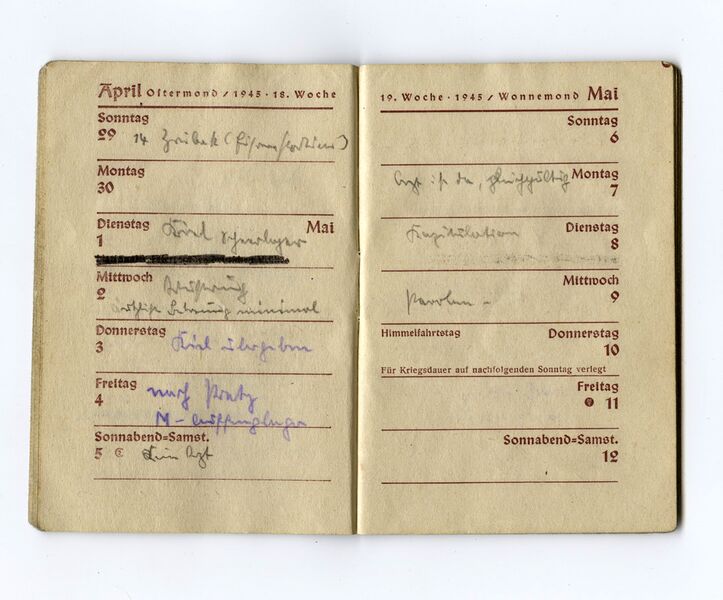 April Ostermond / 1945 · 18. Woche
Sonntag
29
14
Montag
30
Dienstag Mai
1 Kiel
Mittwoch
2
minimal
Donnerstag
3 Kiel übergeben
Freitag
4 nach
M-
Sonnabend=Samst.
5 Kein Arzt
19. Woche · 1945 / Wonnemond Mai
Sonntag
6
Montag
Arzt ist da, gleichgültig 7
Dienstag
Kapitulation 8
Mittwoch
Parolen – 9
Himmelfahrtstag Donnerstag
10
Für Kriegsdauer auf nachfolgenden Sonntag verlegt
Freitag
11
Sonnabend=Samst.
12